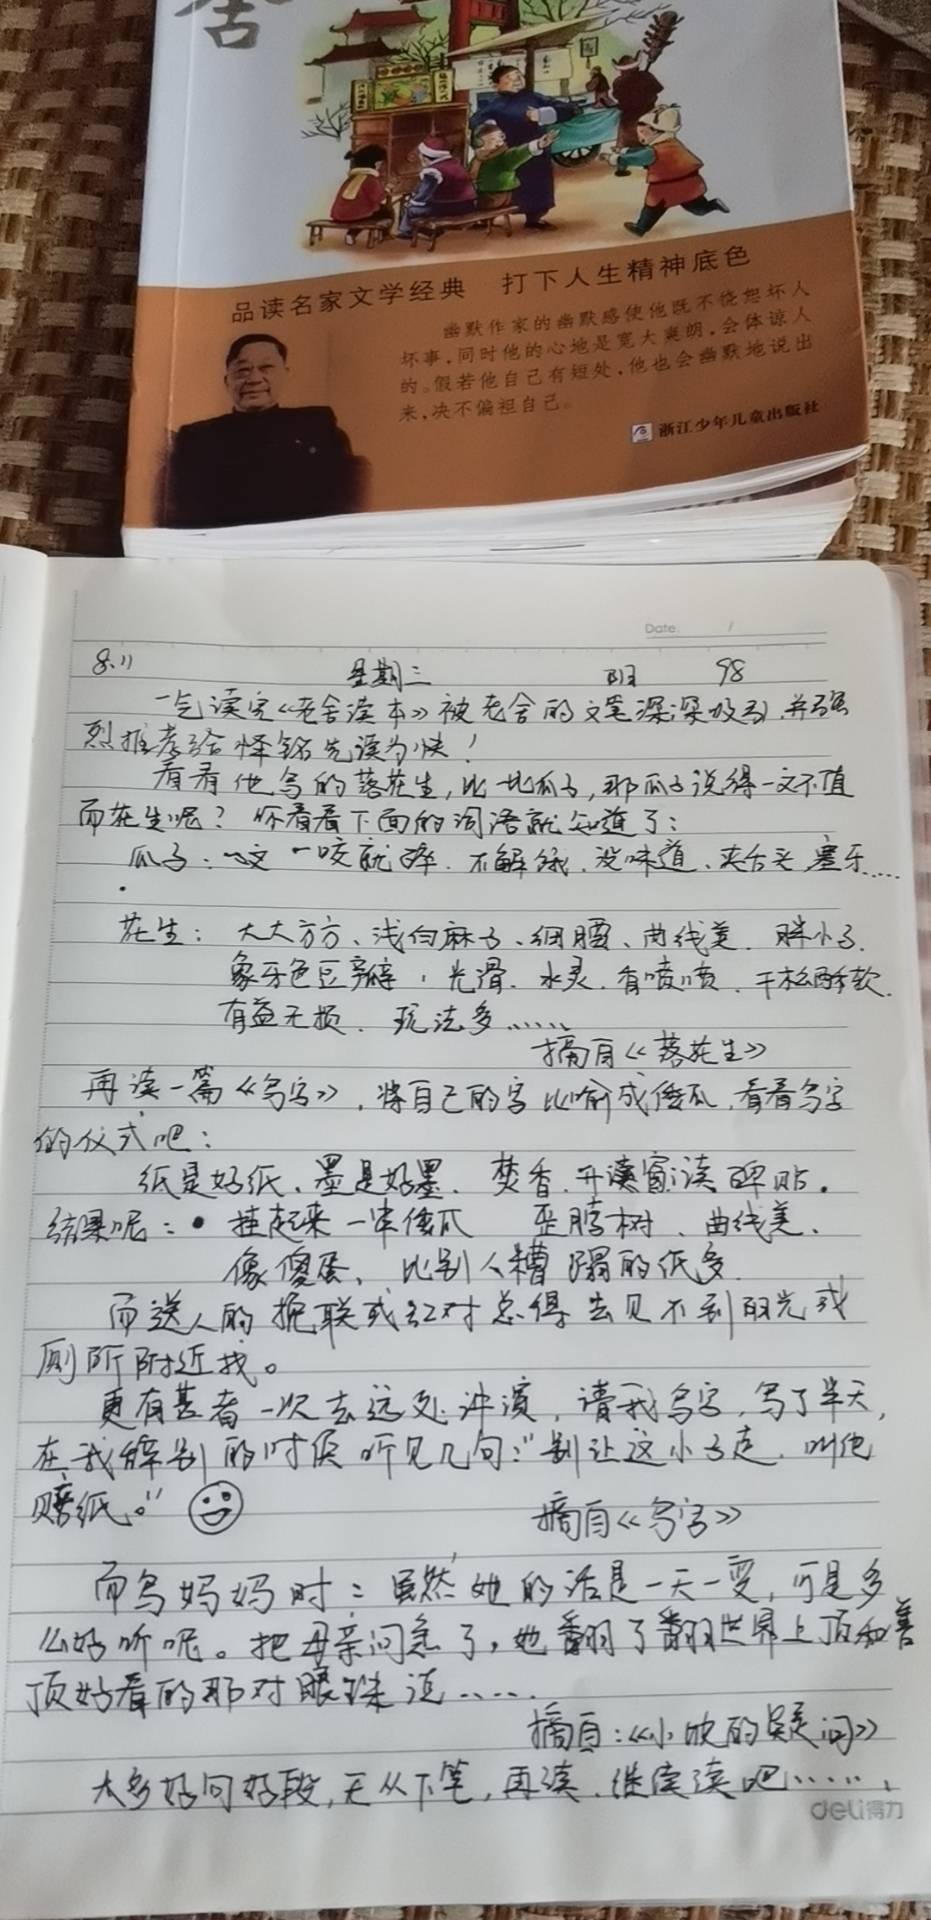 舍
品读名家文学经典 打下人生精神底色
幽默作家的幽默感使他既不饶恕坏人
坏事,同时他的心地是宽大爽朗,会体谅人
的。假若他自己有短处,他也会幽默地说出
来,决不偏袒自己。
浙江少年儿童出版社
Date. /
8.11 星期三 98
一气读完《老舍读本》被老舍的文笔深深吸引,并强
烈推荐给 先读为快!
看看他写的落花生,比比瓜子,那瓜子说得一文不值
而花生呢?你看看下面的词语就知道了:
瓜子: 一咬就碎.不解饿、没味道、夹舌头,塞牙……
花生: 大大方方、浅白麻子、细腰、曲线美.胖小子.
象牙色豆瓣,光滑.水灵.香喷喷.干松酥软.
有益无损.玩法多……
摘自《落花生》
再读一篇《写字》,将自己的字比喻成倭瓜,看看写字
的仪式吧:
纸是好纸、墨是好墨.焚香.开 窗读碑帖.
结果呢: 挂起来一串倭瓜 歪脖树、曲线美、
像傻蛋、比别人糟蹋的纸多.
而送人的挽联或红对总得去见不到的光或
厕所附近找。
更有甚者一次去远处 ,请我写字,写了半天,
在我解别的时候听见几句:"别让这小子走,叫他
赔纸。"
摘自《写字》
而写妈妈时:虽然她的话是一天一变,可是多
么好听呢。把母亲问急了,她翻了翻世界上顶和善
顶好看的那对眼珠说……
摘自:《小坡的疑问》
太多好句好段,无从下笔,再读.继续读吧……
deli得力